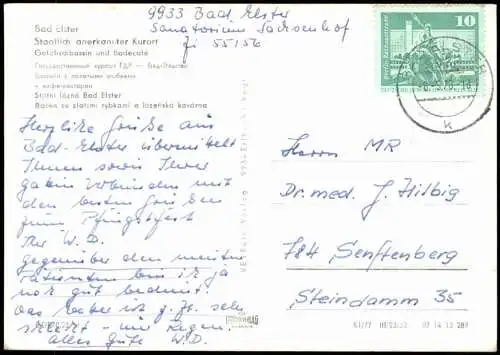 Bad Elster
Staatlich anerkannter Kurort
Goldfischbassin und Badecafé
Государственный курорт ГДР — Бад-Эльстер
Бассейн с золотыми рыбками
и кафетерием
Státní lázně Bad Elster
Bazén se zlatými rybkami a lázeňská kavárna
9933 Bad Elster
Sanatorium Sachsenhof
Zi 55156
10
Herzliche Grüße aus
Bad-Elster übermittelt
Ihnen sowie Ihrer
Gattin verbunden mit
den besten Grüßen
zum Pfingstfest
Ihr W. D.
Gegenüber den meisten
Patienten bin ich ja
noch gut bedient.
Das Wetter ist z. Zt. sehr
schlecht - nur Regen.
Alles Gute W. D.
Herrn MR
Dr. med. J. Hilbig
784 Senftenberg
Steindamm 35
K1/77 III/23/52